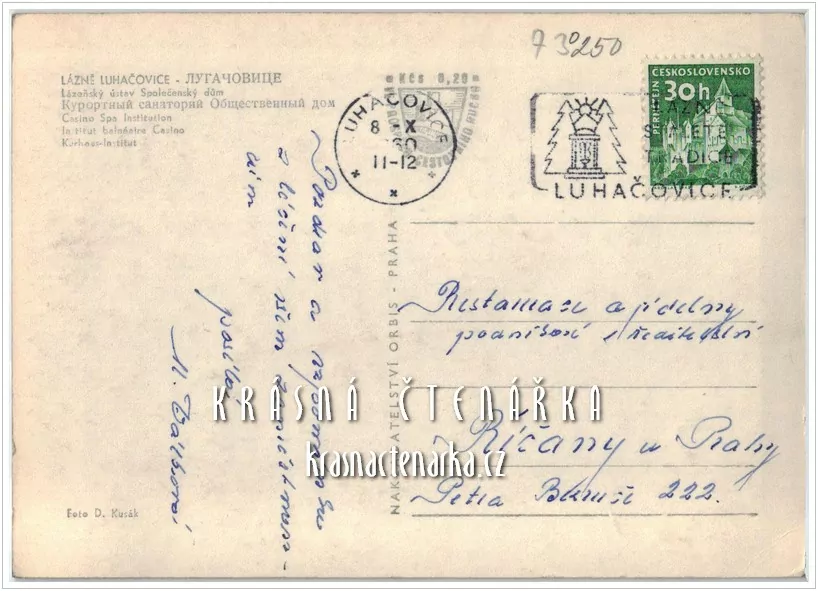 7 30250
LÁZNĚ LUHAČOVICE - ЛУГАЧОВИЦЕ
Lázeňský ústav Společenský dům
Курортный санаторий Общественный дом
Casino Spa Institution
Institut balnéaire Casino
Kurhaus-Institut
Kčs 0,20
LUHAČOVICE
8 X 60
11-12
LÁZNĚ
SVĚTETRADICE
LUHAČOVICE
ČESKOSLOVENSKO
30h
PERNŠTEJN
Pozdrav a vzpomínku
z léčení všem
posílá
M.
NAKLADATELSTVÍ ORBIS - PRAHA
Restaurace a jídelny
podnikové ředitelství
Říčany u Prahy
Petra Bezruče 222.
KRÁSNÁ ČTENÁŘKA
krasnactenarka.cz
Foto D. Kusák